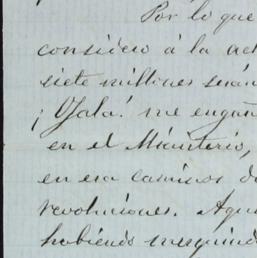 Por lo que
considero á la act
siete millones
¡Ojalá! me engañ
en el Ministerio,
en esa camino d
revoluciones. Aqu
habiendo mezquind